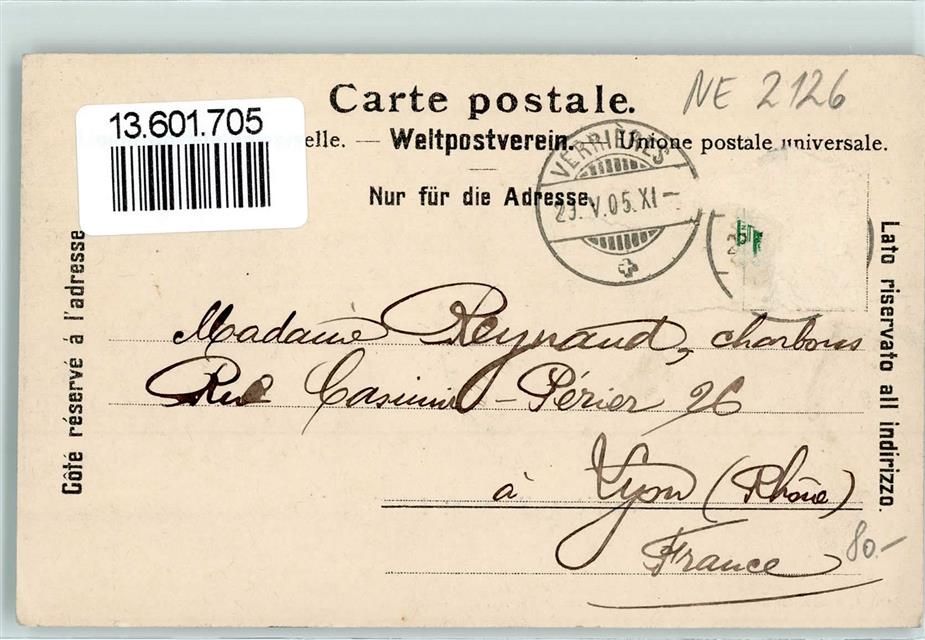 Carte postale.
NE 2126
13.601.705
elle. — Weltpostverein. — Unione postale universale.
Nur für die Adresse.
VERRIÈRES
V.05.XI–
Côté réservé à l'adresse
Lato riservato all indirizzo.
Madame Reynaud, charbons
Rue Casimir-Périer 26
à Lyon (Rhône)
France
80.–